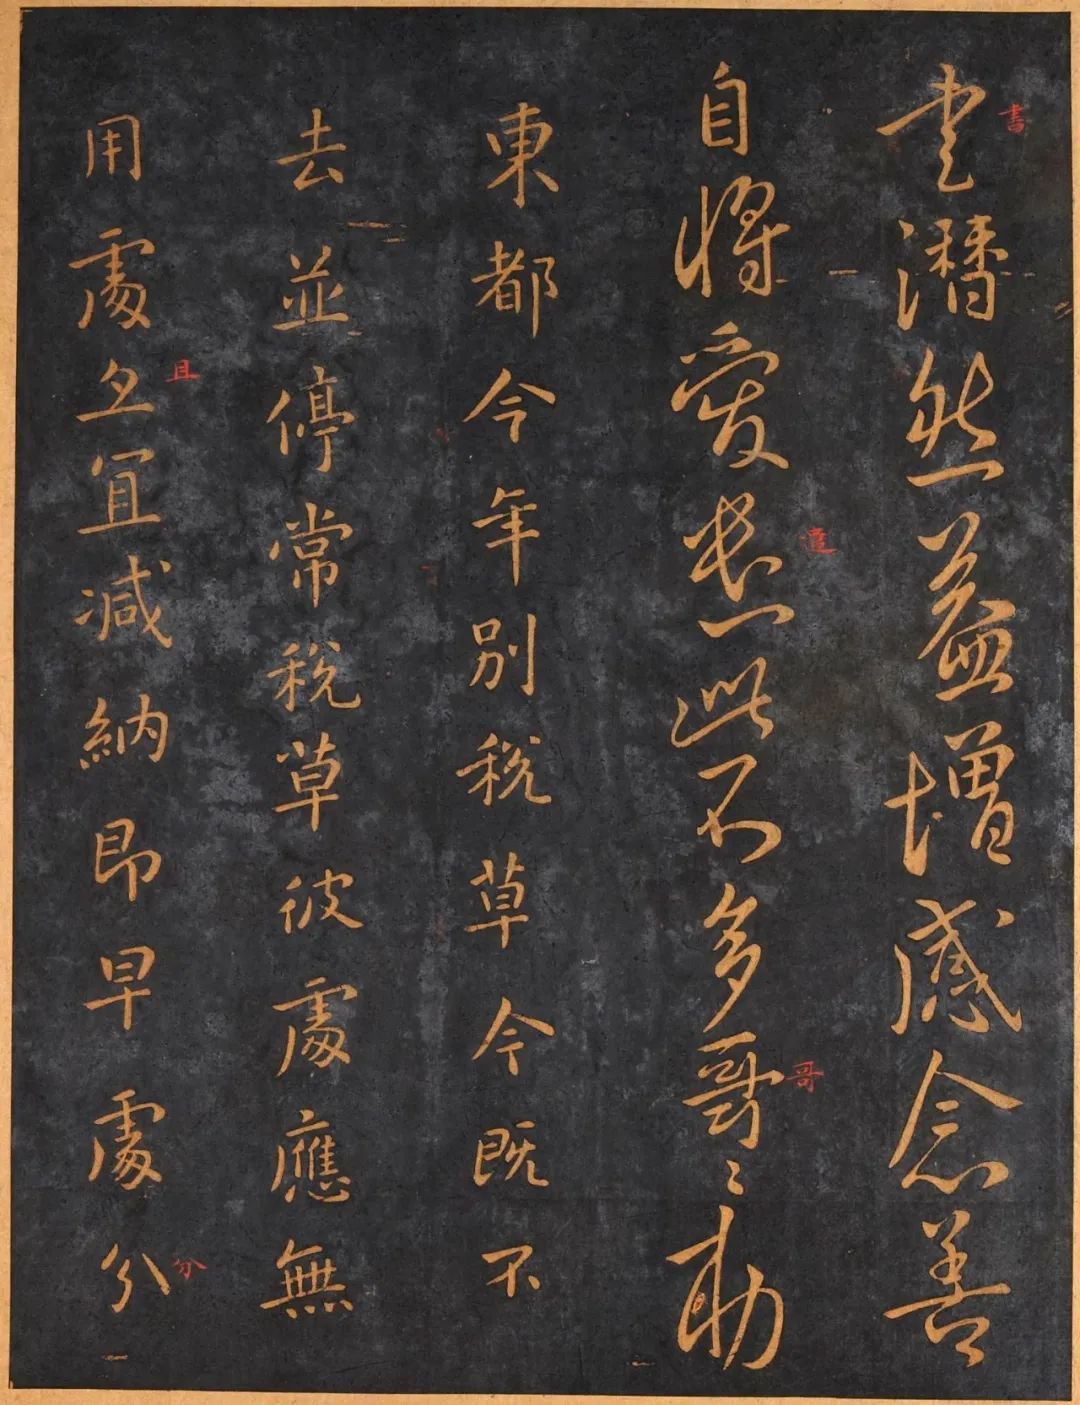 書潜然益增感念善
書
自將愛遣此不多哥〻勅
遣
哥
東都今年別稅草今既不
去並停常稅草彼處應無
用處且宜減納即早處分
且
分